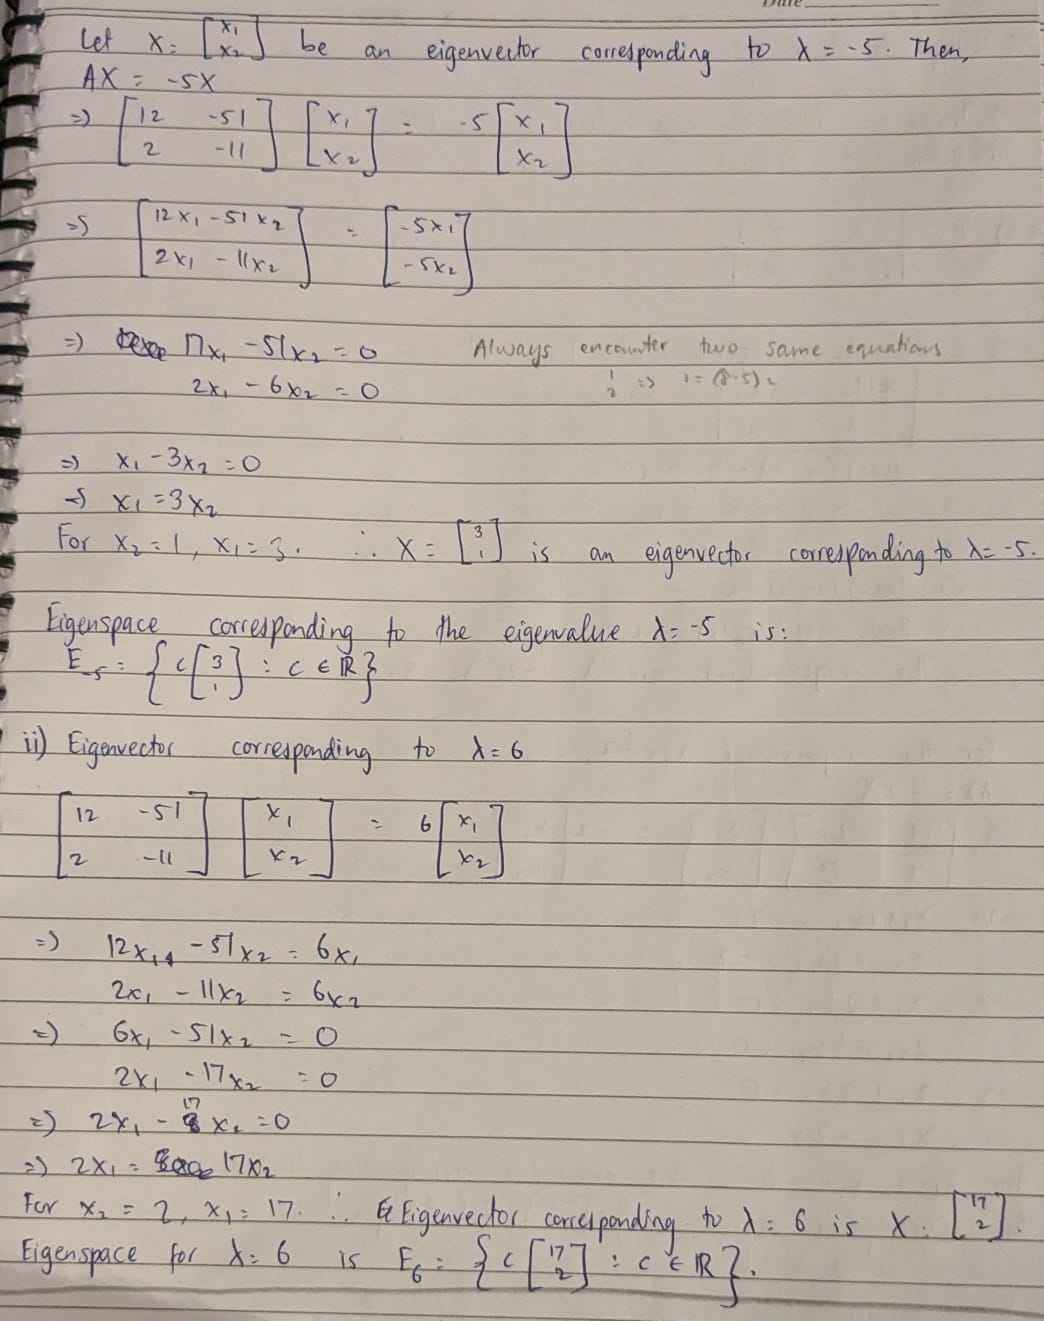 Date
Let X = [x₁ x₂] be an eigenvector corresponding to λ = -5. Then,
AX = -5X
=> [12 -51; 2 -11] [x₁; x₂] = -5 [x₁; x₂]
=> [12x₁ - 51x₂; 2x₁ - 11x₂] = [-5x₁; -5x₂]
=> 17x₁ - 51x₂ = 0 Always encounter two same equations
2x₁ - 6x₂ = 0
=> x₁ - 3x₂ = 0
=> x₁ = 3x₂
For x₂ = 1, x₁ = 3. ∴ X = [3; 1] is an eigenvector corresponding to λ = -5.
Eigenspace corresponding to the eigenvalue λ = -5 is:
E₋₅ = {c[3; 1] : c ∈ ℝ}
ii) Eigenvector corresponding to λ = 6
[12 -51; 2 -11] [x₁; x₂] = 6 [x₁; x₂]
=> 12x₁ - 51x₂ = 6x₁
2x₁ - 11x₂ = 6x₂
=> 6x₁ - 51x₂ = 0
2x₁ - 17x₂ = 0
=> 2x₁ - 17x₂ = 0
=> 2x₁ = 17x₂
For x₂ = 2, x₁ = 17. ∴ Eigenvector corresponding to λ = 6 is X = [17; 2].
Eigenspace for λ = 6 is E₆ = {c[17; 2] : c ∈ ℝ}.